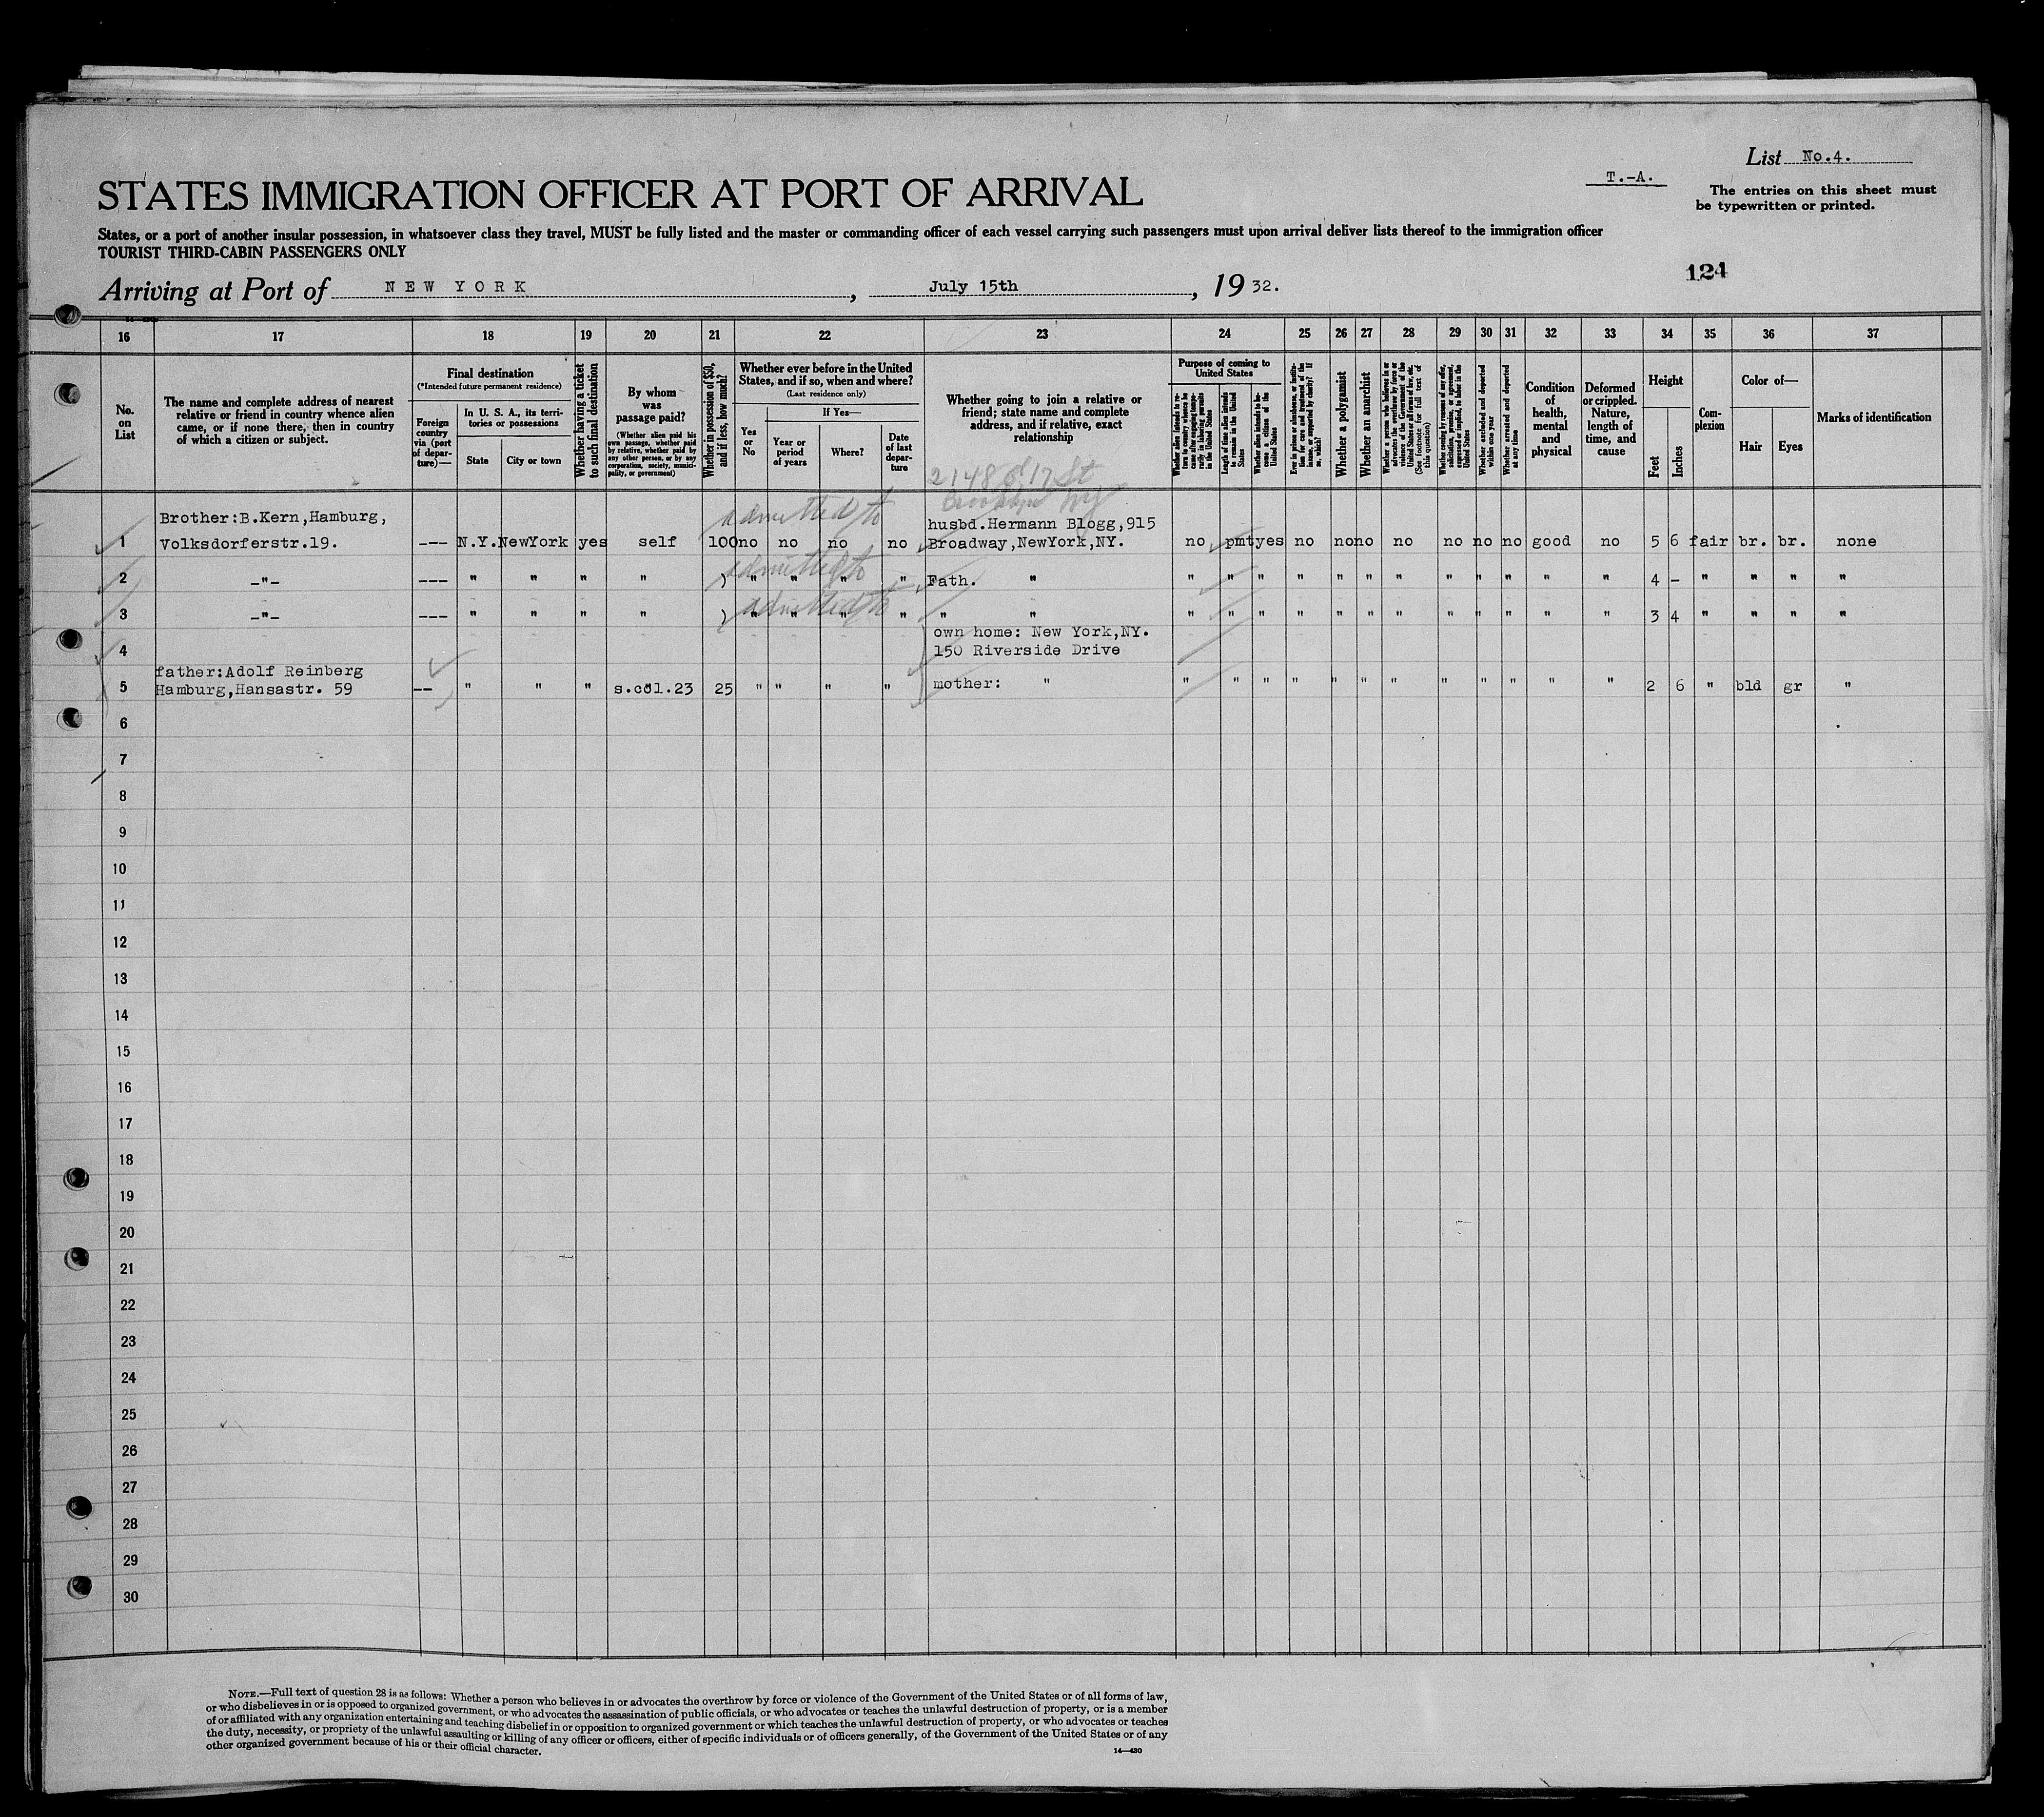 List No.4.
T.-A.
The entries on this sheet must
be typewritten or printed.
STATES IMMIGRATION OFFICER AT PORT OF ARRIVAL
States, or a port of another insular possession, in whatsoever class they travel, MUST be fully listed and the master or commanding officer of each vessel carrying such passengers must upon arrival deliver lists thereof to the immigration officer
TOURIST THIRD-CABIN PASSENGERS ONLY
124
Arriving at Port of NEW YORK, July 15th, 1932.
16 17 18 19 20 21 22 23 24 25 26 27 28 29 30 31 32 33 34 35 36 37
No. on List
The name and complete address of nearest
relative or friend in country whence alien
came, or if none there, then in country
of which a citizen or subject.
Final destination
(*Intended future permanent residence)
Foreign country via (port of departure)—
In U. S. A., its territories or possessions
State
City or town
Whether having a ticket to such final destination
By whom was passage paid?
(Whether alien paid his own passage, whether paid by relative, whether paid by any other person, or by any corporation, society, municipality, or government)
Whether in possession of $50, and if less, how much?
Whether ever before in the United States, and if so, when and where?
(Last residence only)
Yes or No
If Yes—
Year or period of years
Where?
Date of last departure
Whether going to join a relative or
friend; state name and complete
address, and if relative, exact
relationship
Purpose of coming to United States
Whether alien intends to return to country whence he came after engaging temporarily in laboring pursuits in the United States
Length of time alien intends to remain in the United States
Whether alien intends to become a citizen of the United States
Ever in prison or almshouse, or institution for care and treatment of the insane, or supported by charity? If so, which?
Whether a polygamist
Whether an anarchist
Whether a person who believes in or advocates the overthrow by force or violence of the Government of the United States or all forms of law, etc. (See footnote for full text of this question)
Whether coming by reason of any offer, solicitation, promise, or agreement, expressed or implied, to labor in the United States
Whether excluded and deported within one year
Whether arrested and deported at any time
Condition of health, mental and physical
Deformed or crippled. Nature, length of time, and cause
Height
Feet
Inches
Complexion
Color of—
Hair
Eyes
Marks of identification
2148 17 St
Brooklyn NY
admitted to
Brother:B.Kern,Hamburg,
husbd.Hermann Blogg,915
1 Volksdorferstr.19. --- N.Y. NewYork yes self 100 no no no no Broadway,NewYork,NY. no pmt yes no no no no no no no good no 5 6 fair br. br. none
admitted to
2 -"- --- " " " " ) " " " " Fath. " " " " " " " " " " " " " 4 - " " " "
admitted to
3 -"- --- " " " " ) " " " " " " " " " " " " " " " " " " 3 4 " " " "
own home: New York,NY.
4 150 Riverside Drive
father:Adolf Reinberg
5 Hamburg,Hansastr. 59 -- " " " s.col.23 25 " " " " mother: " " " " " " " " " " " " " 2 6 " bld gr "
6
7
8
9
10
11
12
13
14
15
16
17
18
19
20
21
22
23
24
25
26
27
28
29
30
NOTE.—Full text of question 28 is as follows: Whether a person who believes in or advocates the overthrow by force or violence of the Government of the United States or of all forms of law,
or who disbelieves in or is opposed to organized government, or who advocates the assassination of public officials, or who advocates or teaches the unlawful destruction of property, or is a member
of or affiliated with any organization entertaining and teaching disbelief in or opposition to organized government or which teaches the unlawful destruction of property, or who advocates or teaches
the duty, necessity, or propriety of the unlawful assaulting or killing of any officer or officers, either of specific individuals or of officers generally, of the Government of the United States or of any
other organized government because of his or their official character.
14—430